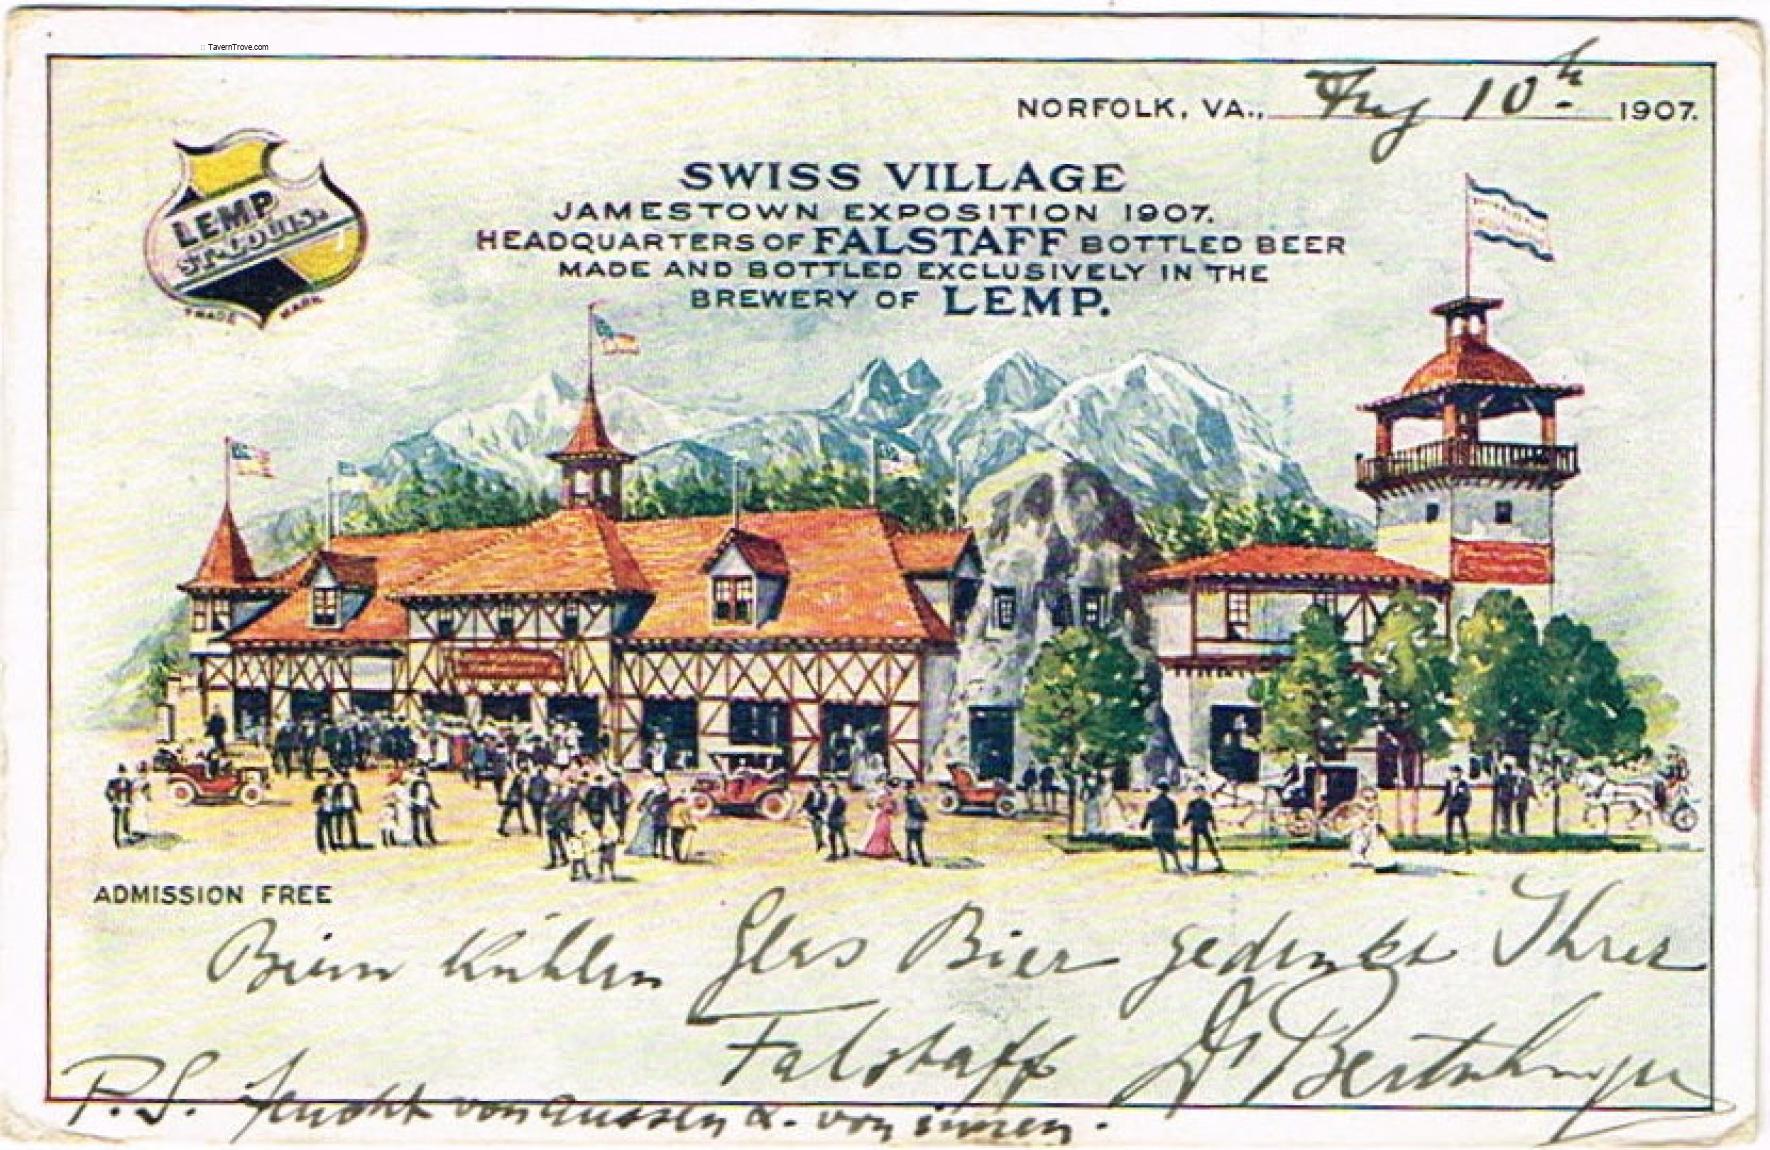 :: TavernTrove.com
NORFOLK, VA., Aug 10th 1907.
LEMP
ST. LOUIS.
TRADE MARK
SWISS VILLAGE
JAMESTOWN EXPOSITION 1907.
HEADQUARTERS OF FALSTAFF BOTTLED BEER
MADE AND BOTTLED EXCLUSIVELY IN THE
BREWERY OF LEMP.
ADMISSION FREE
Beim kühlen Glas Bier gedenkt Ihrer
Falstaff Dr
P.S. feucht von aussen & von innen.